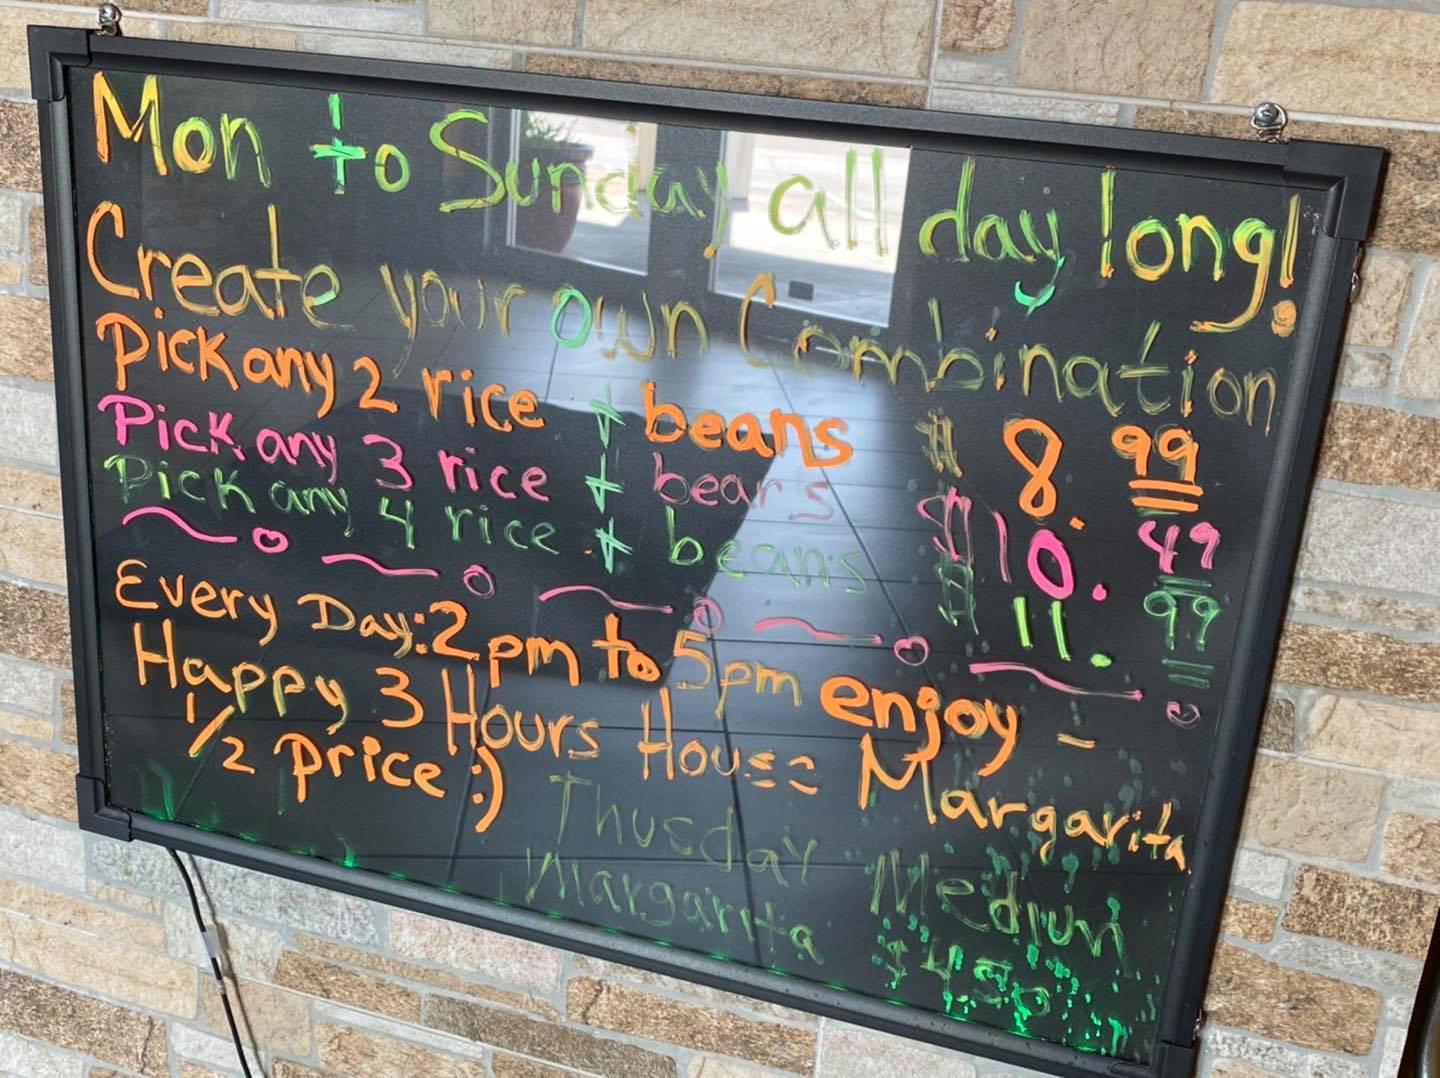 Mon to Sunday all day long!
Create your own Combination
Pick any 2 rice + beans $ 8.99
Pick any 3 rice + beans $10.49
Pick any 4 rice + beans $ 11.99
Every Day: 2pm to 5pm enjoy -
Happy 3 Hours House Margarita
1/2 price :)
Thusday Medium
Margarita $4.50